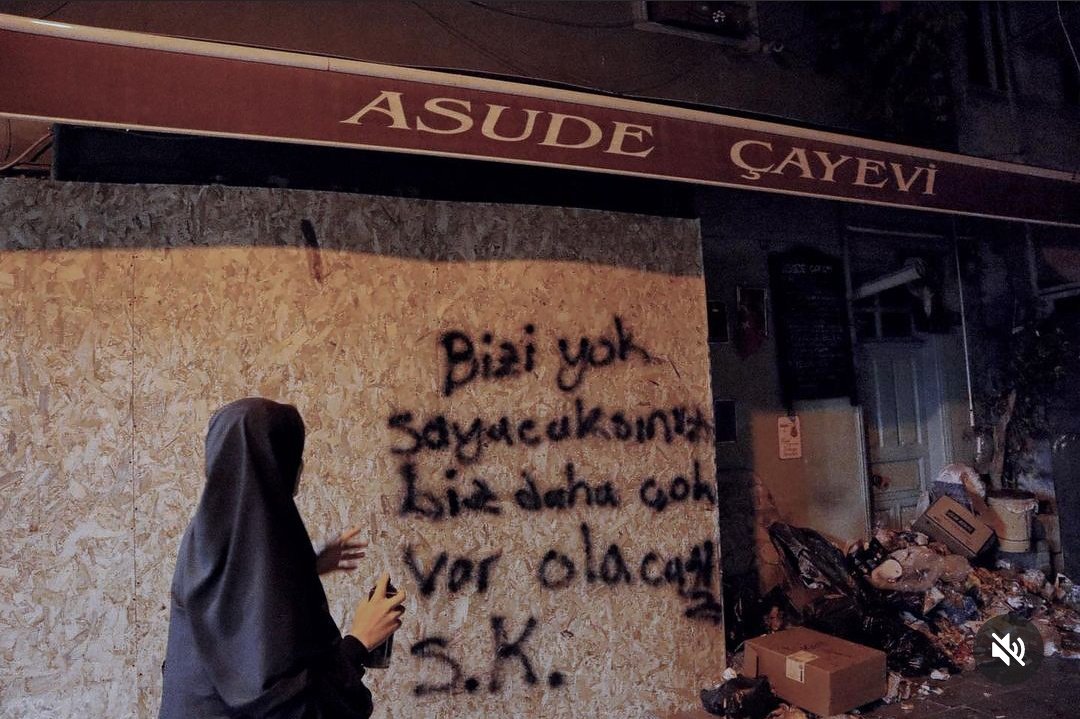 ASUDE ÇAYEVİ
Bizi yok
sayacaksınız
biz daha çok
var olacağız
S.K.